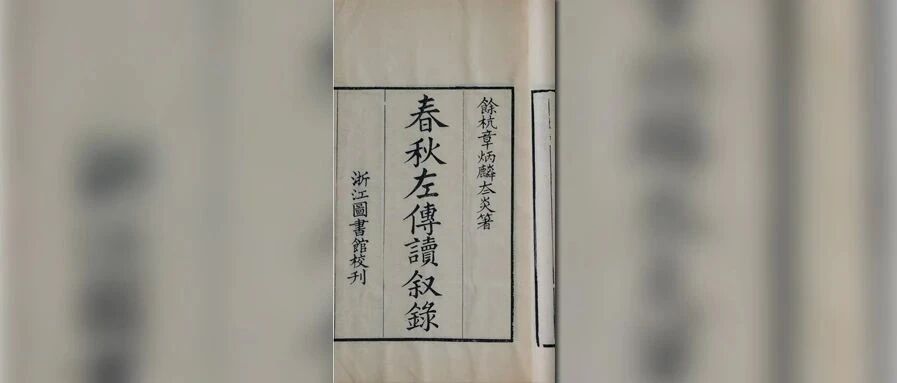 餘杭章炳麟太炎箸
春秋左傳讀叙錄
浙江圖書館校刊